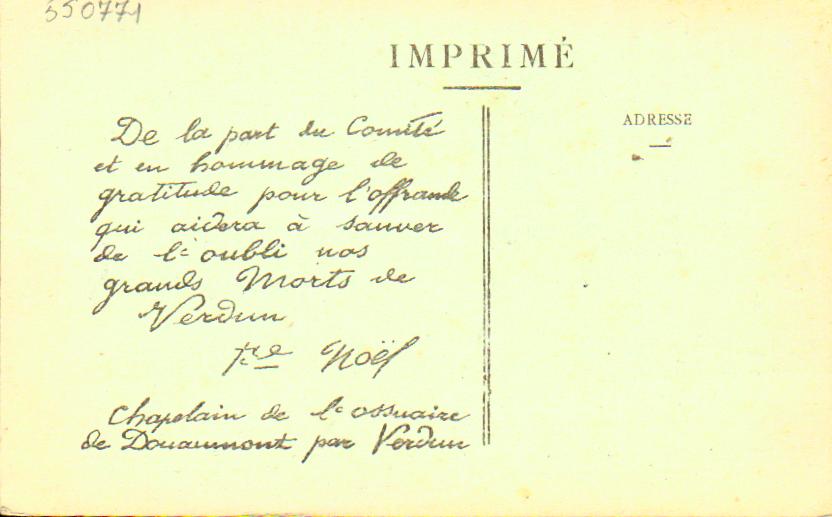 550771
IMPRIMÉ
ADRESSE
De la part du Comité
et en hommage de
gratitude pour l'offrande
qui aidera à sauver
de l'oubli nos
grands Morts de
Verdun
Noël
Chapelain de l'ossuaire
de Douaumont par Verdun